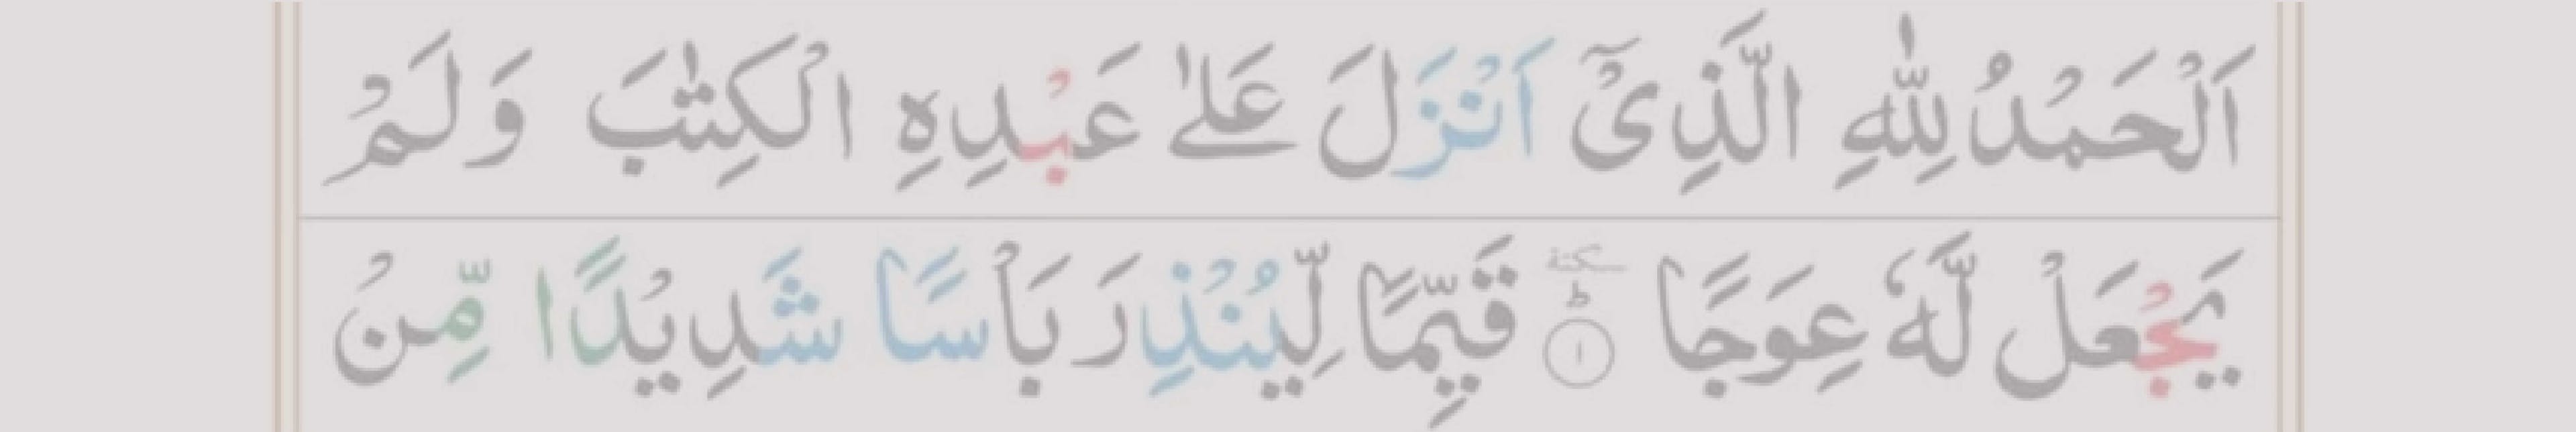 اَلْحَمْدُ لِلّٰهِ الَّذِیْۤ اَنْزَلَ عَلٰی عَبْدِهِ الْكِتٰبَ وَلَمْ
یَجْعَلْ لَّهٗ عِوَجًا ؕ سكتة ١ قَیِّمًا لِّیُنْذِرَ بَاْسًا شَدِیْدًا مِّنْ